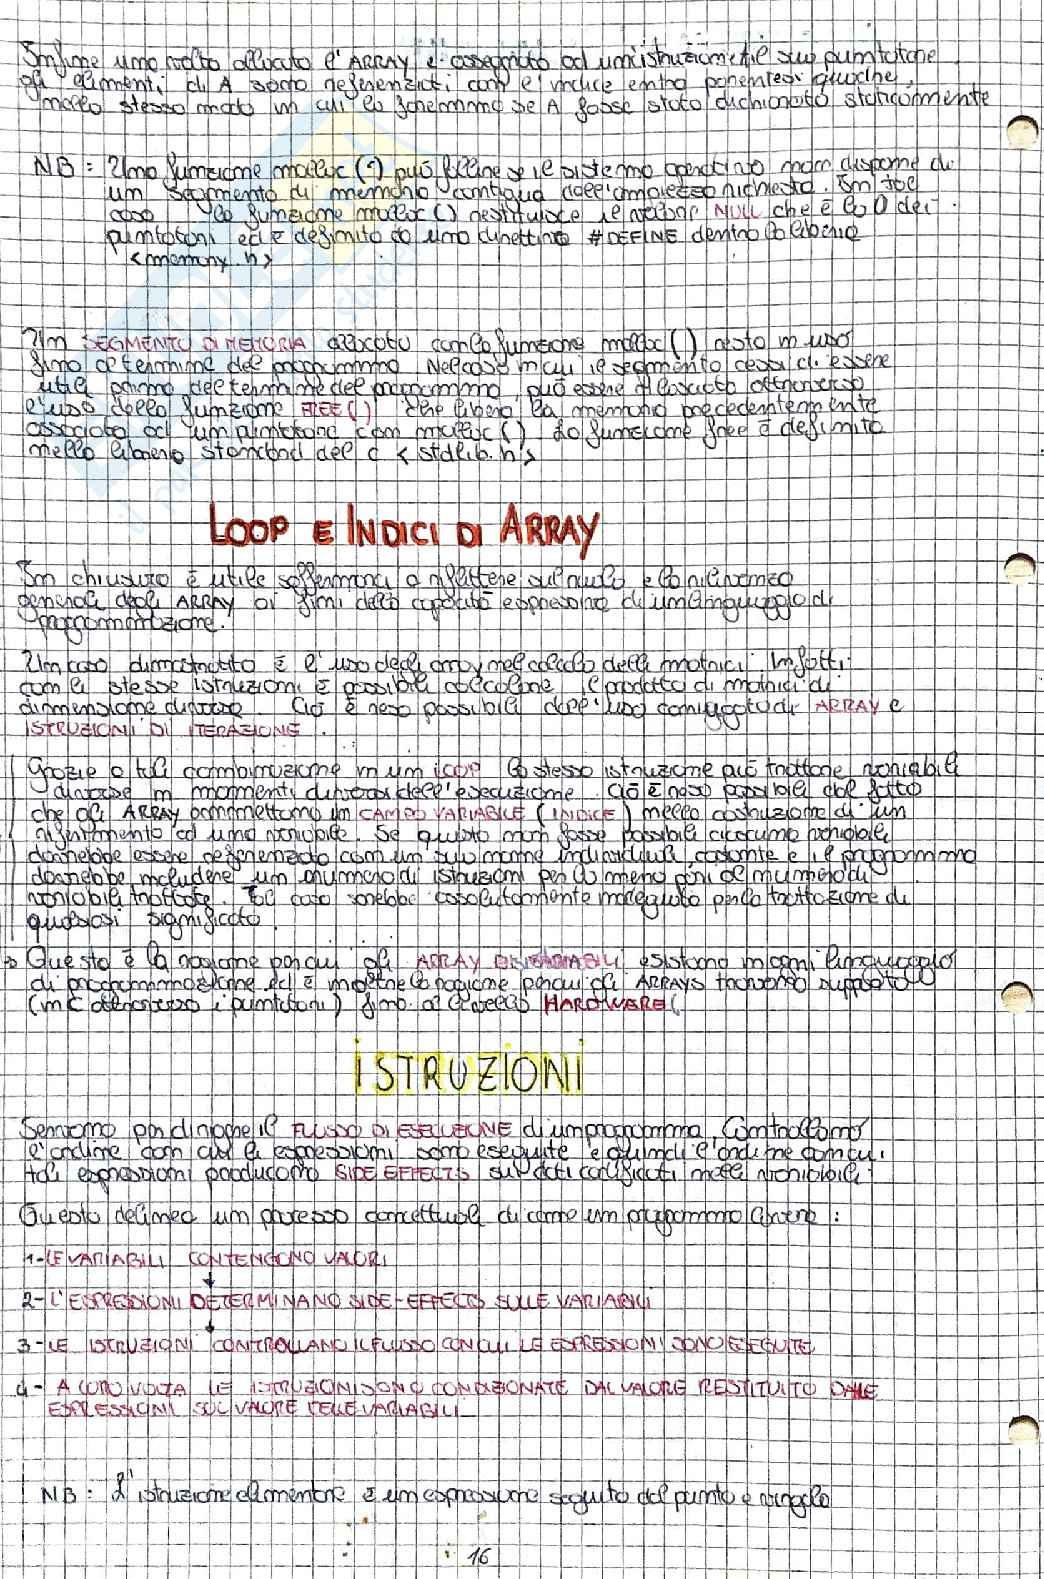 Infine una volta allocato l'ARRAY e assegnato ad un'istruzione il suo puntatore
gli elementi di A sono referenziati con l'indice entro parentesi quadre,
nello stesso modo in cui lo faremmo se A fosse stato dichiarato staticamente
NB: Una funzione malloc () può fallire se il sistema operativo non dispone di
un segmento di memoria contigua dell'ampiezza richiesta. In tal
caso la funzione malloc () restituisce il valore NULL che è lo 0 dei
puntatori ed è definito da una direttiva #DEFINE dentro la libreria
<memory.h>
Un SEGMENTO DI MEMORIA allocato con la funzione malloc () resta in uso
fino al termine del programma. Nel caso in cui il segmento cessi di essere
utile prima del termine del programma, può essere rilasciato attraverso
l'uso della funzione FREE() che libera la memoria precedentemente
associata ad un puntatore con malloc (). La funzione free è definita
nella libreria standard del C <stdlib.h>
LOOP E INDICI DI ARRAY
In chiusura è utile soffermarci a riflettere sul ruolo e la rilevanza
generale degli ARRAY ai fini della capacità espressiva di un linguaggio di
programmazione.
Un caso dimostrativo è l'uso degli array nel calcolo delle matrici. Infatti
con le stesse istruzioni è possibile calcolare il prodotto di matrici di
dimensione diverse. Ciò è reso possibile dall'uso coniugato di ARRAY e
ISTRUZIONI DI ITERAZIONE.
Grazie a tale combinazione in un LOOP la stessa istruzione può trattare variabili
diverse in momenti diversi dell'esecuzione. Ciò è reso possibile dal fatto
che gli ARRAY ammettono un CAMPO VARIABILE (INDICE) nella costruzione di un
riferimento ad una variabile. Se questo non fosse possibile ciascuna variabile
dovrebbe essere referenziata con un suo nome individuale, costante e il programma
dovrebbe includere un numero di istruzioni per lo meno pari al numero di
variabili trattate. Tal caso sarebbe assolutamente inadeguato per la trattazione di
qualsiasi significato.
Questa è la ragione per cui gli ARRAY DI VARIABILI esistono in ogni linguaggio
di programmazione ed è inoltre la ragione per cui gli ARRAYS trovano supporto
(in C attraverso i puntatori) fino al livello HARDWARE.
ISTRUZIONI
Servono per dirigere il FLUSSO DI ESECUZIONE di un programma. Controllano
l'ordine con cui le espressioni sono eseguite e quindi l'ordine con cui
tali espressioni producono SIDE EFFECTS sui dati codificati nelle variabili.
Questo delinea un processo concettuale di come un programma lavora:
1-LE VARIABILI CONTENGONO VALORI
2-L'ESPRESSIONI DETERMINANO SIDE-EFFECTS SULLE VARIABILI
3-LE ISTRUZIONI CONTROLLANO IL FLUSSO CON CUI LE ESPRESSIONI SONO ESEGUITE
4- A LORO VOLTA LE ISTRUZIONI SONO CONDIZIONATE DAL VALORE RESTITUITO DALLE
ESPRESSIONI SUL VALORE DELLE VARIABILI
NB: L'istruzione elementare è un espressione seguito dal punto e virgola
16